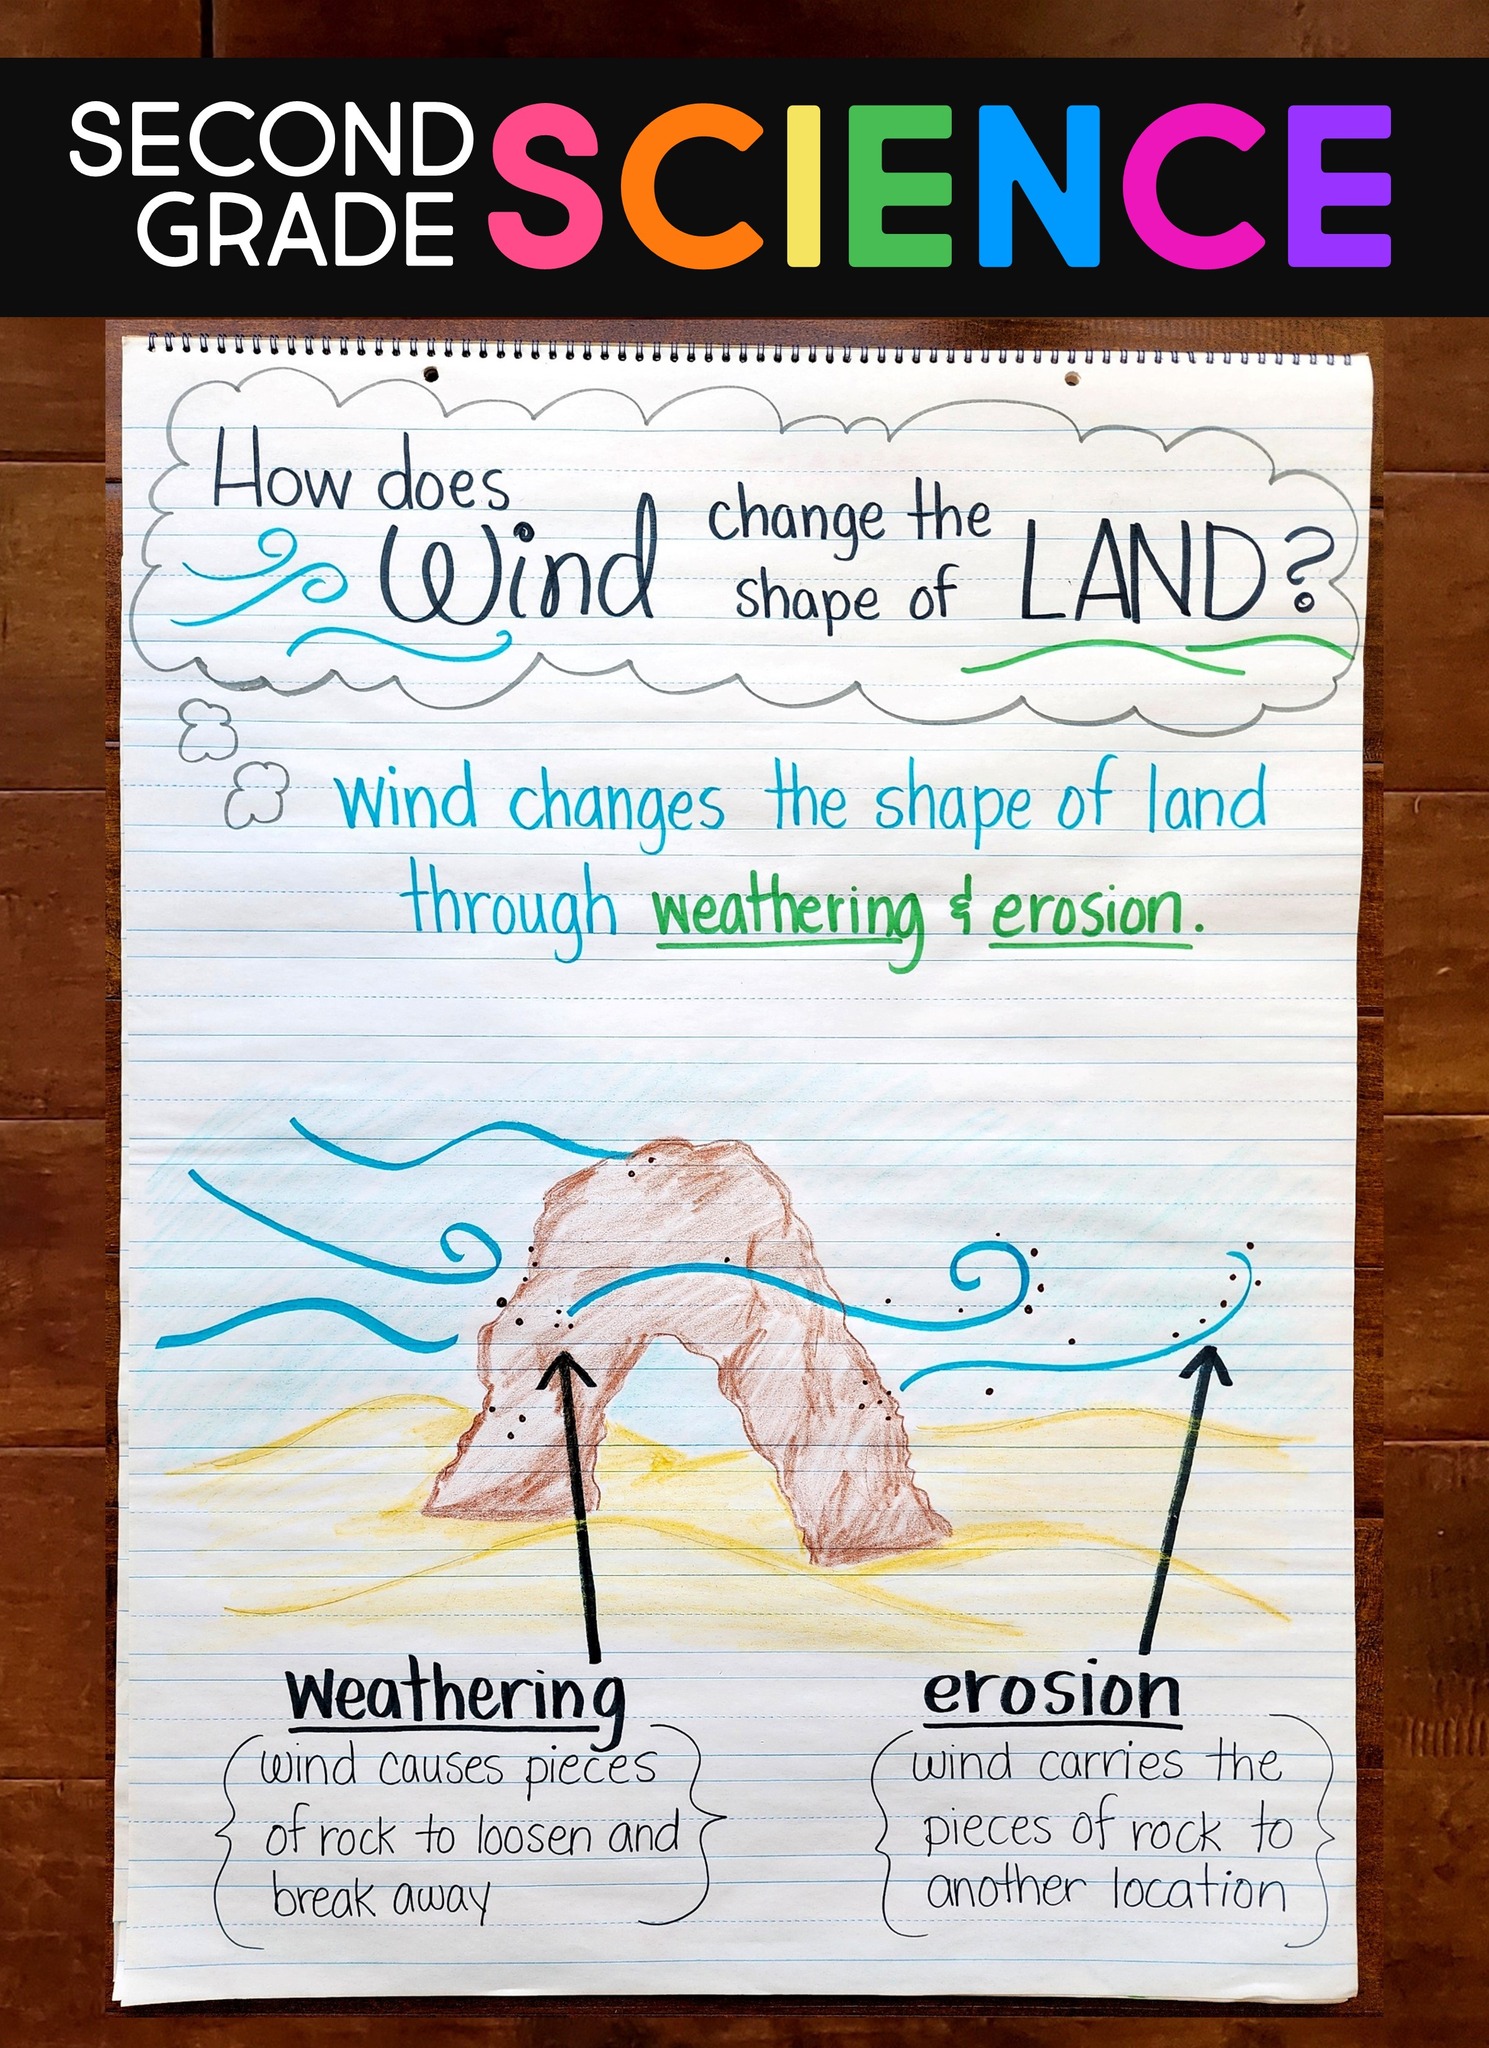 SECOND
GRADE
SCIENCE
How does
Wind
change the
shape of
LAND?
Wind changes the shape of land
through weathering & erosion.
weathering
wind causes pieces
of rock to loosen and
break away
erosion
wind carries the
pieces of rock to
another location